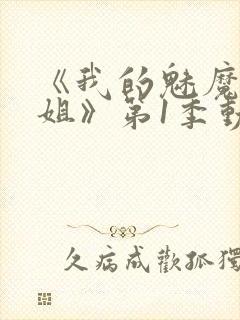 《我的魅魔
姐》第1季動
久病成歡孤獨